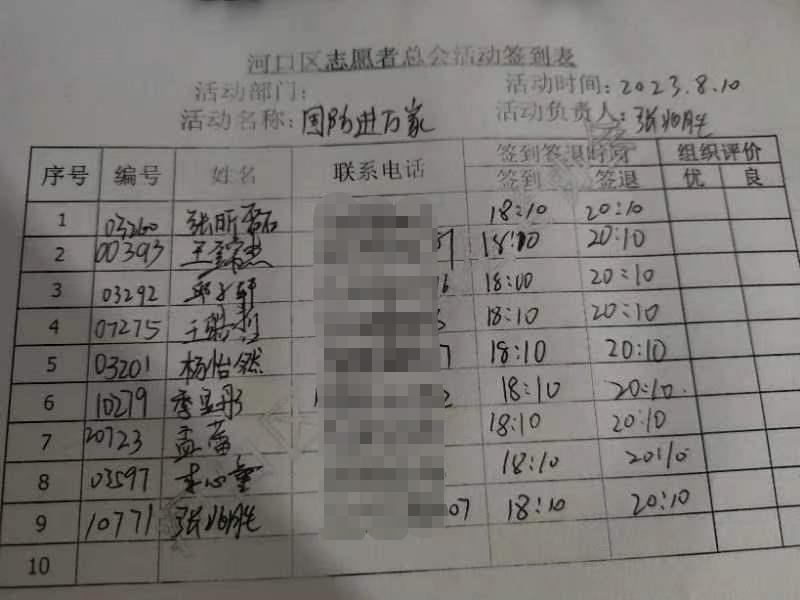 河口区志愿者总会活动签到表
活动部门: 活动时间: 2023.8.10
活动名称: 国防进万家 活动负责人: 张兆胜
序号 编号 姓名 联系电话 签到签退时间 组织评价
签到 签退 优 良
1 03260 张昕 18:10 20:10
2 00393 王 18:10 20:10
3 03292 邱子轩 18:00 20:10
4 07275 18:10 20:10
5 03201 杨怡然 7 18:10 20:10
6 10279 李 2 18:10 20:10
7 20723 孟 18:10 20:10
8 03597 李心 18:10 20:10
9 10771 张兆胜 07 18:10 20:10
10